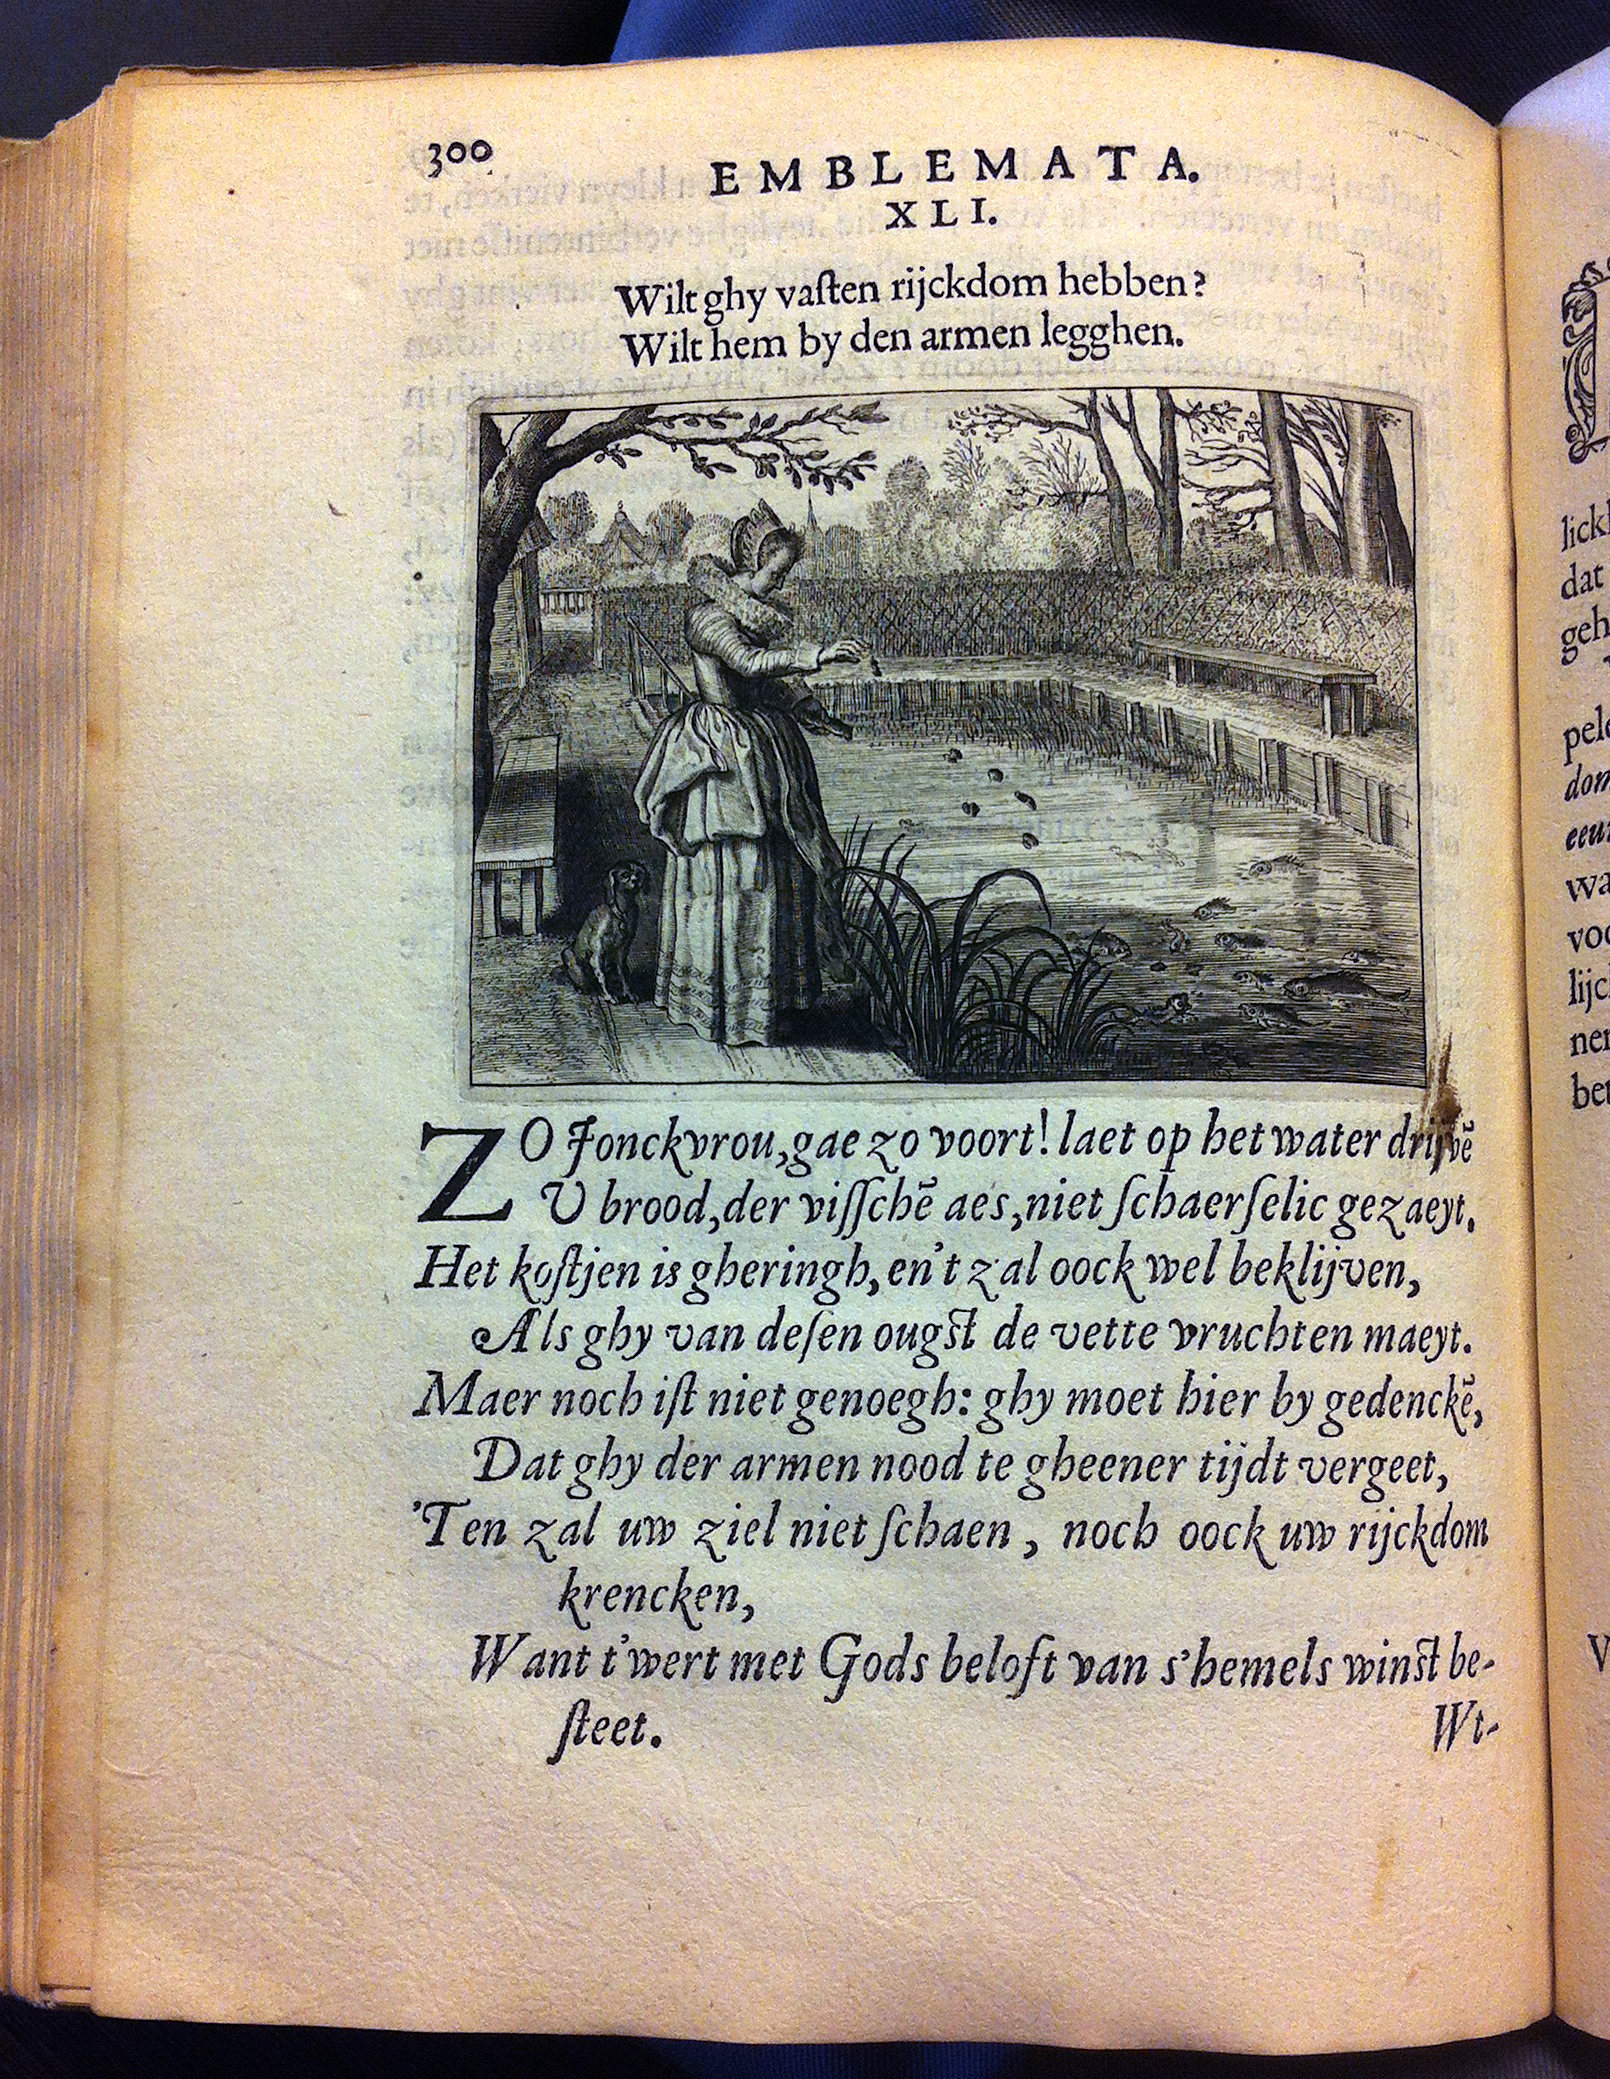 300
EMBLEMATA.
XLI.
Wilt ghy vaſten rijckdom hebben?
Wilt hem by den armen legghen.
ZO Jonckvrou, gae zo voort! laet op het water drijvē
U brood, der viſſchē aes, niet ſchaerſelic gezaeyt.
Het koſtjen is gheringh, en't zal oock wel beklijven,
Als ghy van deſen ougſt de vette vruchten maeyt.
Maer noch iſt niet genoegh: ghy moet hier by gedenckē,
Dat ghy der armen nood te gheener tijdt vergeet,
'Ten zal uw ziel niet ſchaen, noch oock uw rijckdom
krencken,
Want t'wert met Gods beloft van s'hemels winſt be-
ſteet.
Wt-
lick
dat
geh
pele
dom
eeu
wa
voo
lijc
ner
bet
V